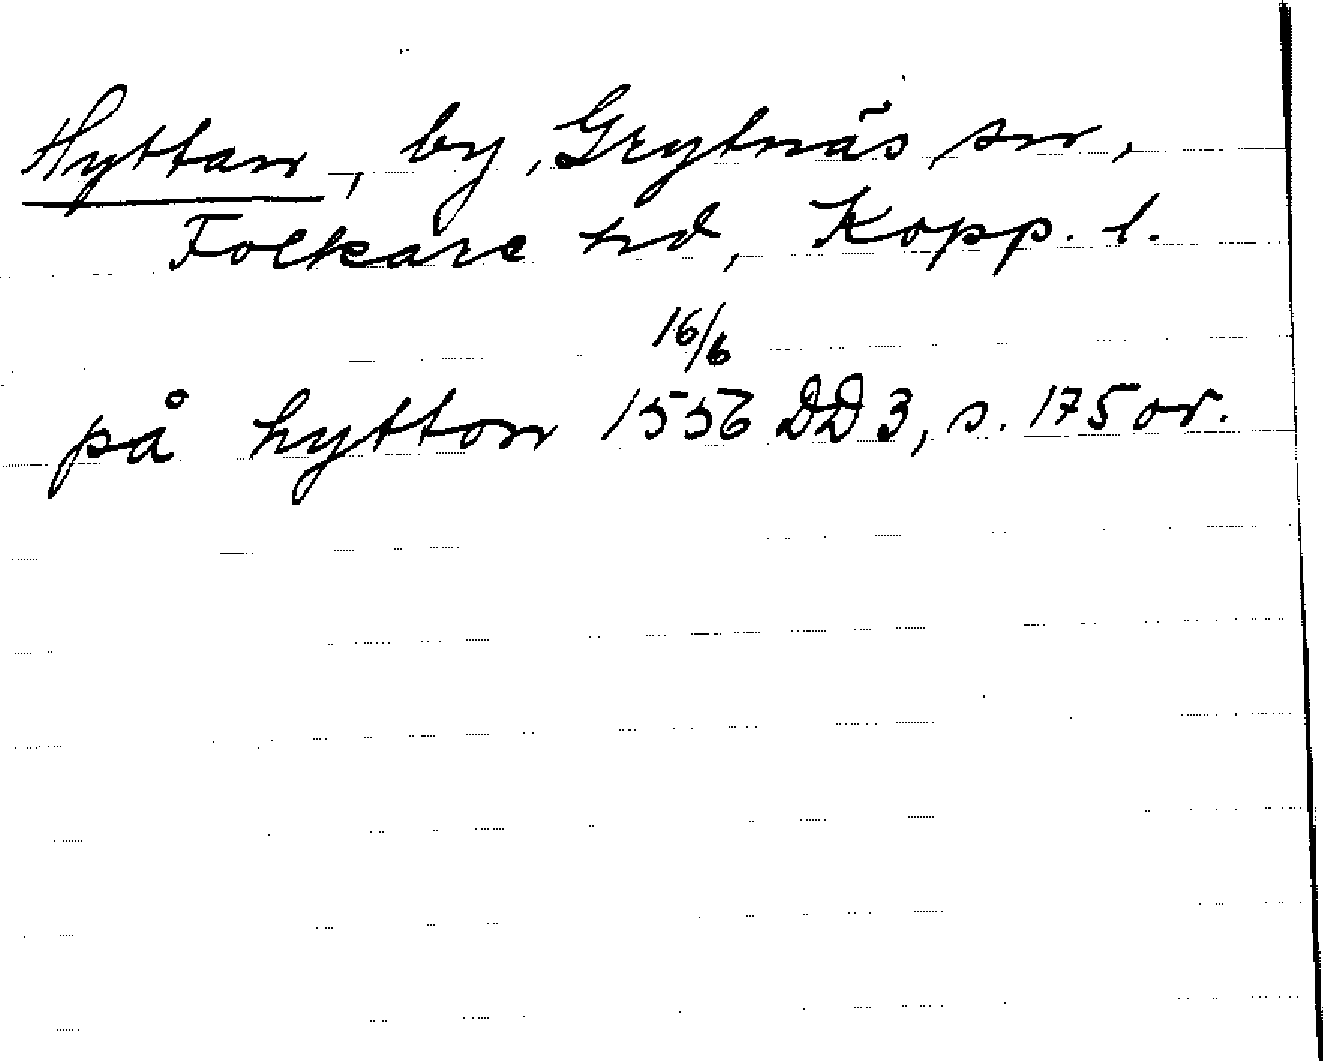 Hyttan, by, Grytnäs sn,
Folkare hd, Kopp. l.
16/6
på hytton 1556 DD 3, s. 175 or.